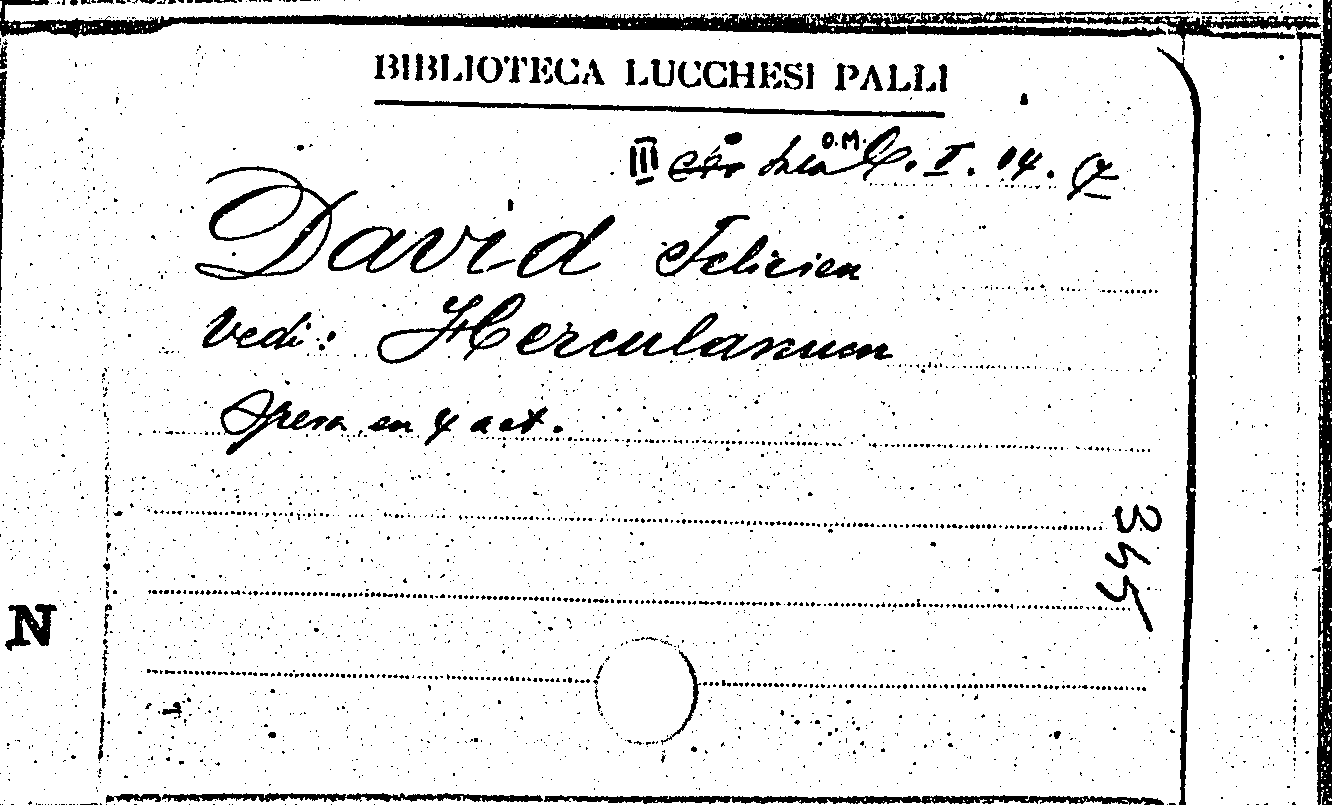 BIBLIOTECA LUCCHESI PALLI
III O.M. C. I. 04. 7
David Felicien
Vedi: Herculanum
Opera en 4 act.
345
N